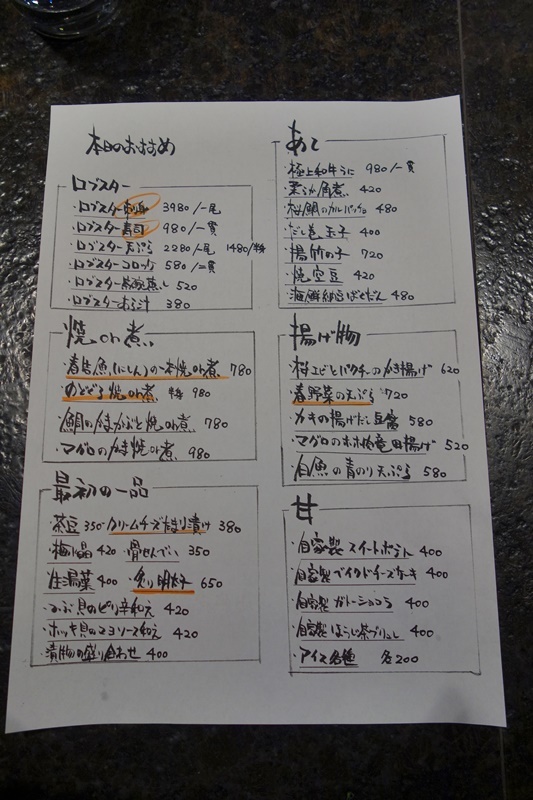 本日のおすすめ
ロブスター
・ロブスターお造り 3980/一尾
・ロブスター寿司 980/一貫
・ロブスター天ぷら 2280/尾 1480/半身
・ロブスターコロッケ 580/二貫
・ロブスター茶碗蒸し 520
・ロブスターあら汁 380
焼or煮
・青鳥魚(にしん)の一本焼or煮 780
・のどぐろ焼or煮 半身 980
・鯛のかまかぶと焼or煮 780
・マグロのかま焼or煮 980
最初の一品
・茶豆 350 ・クリームチーズたまり漬け 380
・梅水晶 420 ・骨せんべい 350
・生湯葉 400 ・炙り明太子 650
・つぶ貝のピリ辛和え 420
・ホッキ貝のマヨソース和え 420
・漬物の盛り合わせ 400
あて
・極上和牛うに 980/一貫
・柔らか角煮 420
・桜鯛のカルパッチョ 480
・だし巻玉子 400
・揚竹の子 720
・焼空豆 420
・海鮮納豆ばくだん 480
揚げ物
・桜エビとパクチーのかき揚げ 620
・春野菜の天ぷら 720
・カキの揚げだし豆腐 580
・マグロのホホ肉竜田揚げ 520
・白魚の青のり天ぷら 580
甘
・自家製 スイートポテト 400
・自家製 ベイクドチーズケーキ 400
・自家製 ガトーショコラ 400
・自家製 ほうじ茶ブリュレ 400
・アイス各種 各200